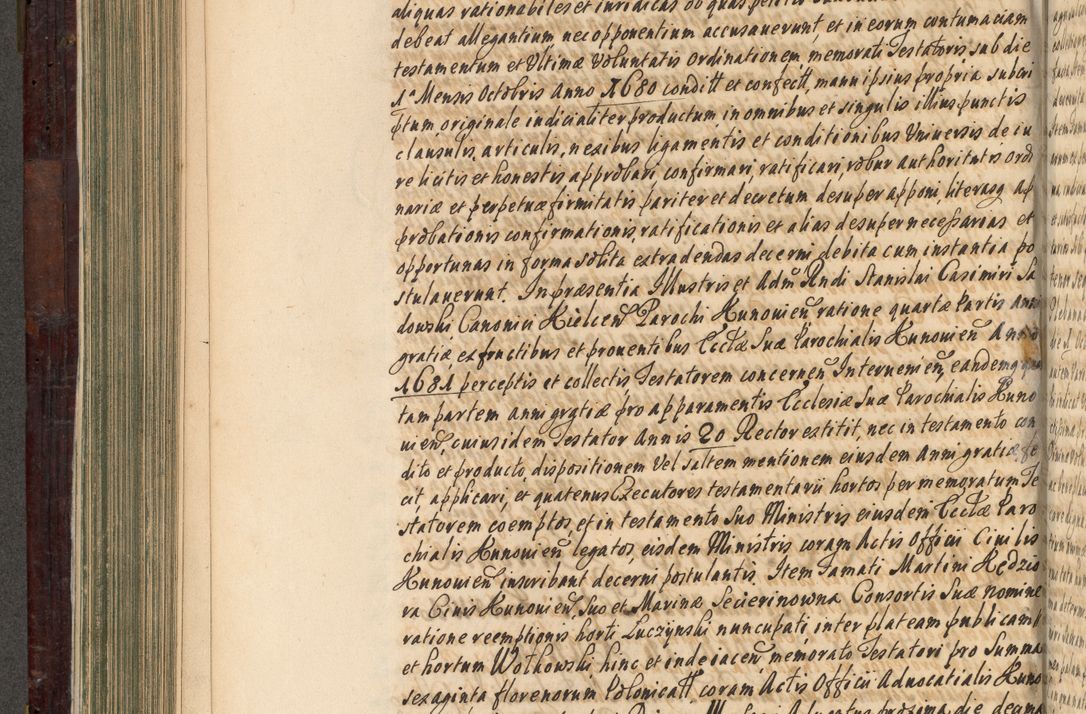 aliquas rationabiles et iuridicas ob quas petita
debeat allegantium nec opponentium accusaverunt, et in eorum contumaciam
testamentum et Ultimæ Voluntatis ordinationem memorati Testatoris sub die
1ª Mensis Octobris Anno 1680 conditt et confectt, manu ipsius propria subcri
ptum originale indicialiter productum in omnibus et singulis illius punctis
clausulis, articulis, nexibus ligamentis et conditionibus Universis de iu
re licitis et honestis approbari confirmari, ratificari, robur authoritatis ordi
nariæ et perpetuæ firmitatis pariter et decretum desuper apponi, literasq ap
probationis confirmationis, ratificationis et alias desuper necessarias et
opportunas in forma solita extradendas decerni debita cum instantia po
stulaverunt. In præsentia Illustris et Adm Rndi Stanislai Casimiri Sa
dowski Canonici Kielcen Parochi Kunovien ratione quartæ Partis anni
gratiæ ex fructibus et proventibus Ecclæ Suæ Parochialis Kunovien Anno
1681 perceptis et collectis Testatorem concernen Intervenien, eandemq quar
tam partem anni gratiæ pro apparamentis Ecclesiæ Suæ Parochialis Kuno
vien, cuius idem Testator Annis 20 Rector extitit, nec in testamento con
dito et producto, dispositionem Vel saltem mentionem eiusdem Anni gratiæ fe
cit, applicari, et quatenus Executores testamentarii hortos per memoratum Te
statorem coemptos, et in testamento Suo Ministris eiusdem Ecclæ Paro
chialis Kunovien legatos, eisdem Ministris coram Actis Officii Civilis
Kunovien inscribant decerni postulantis. Item Famati Martini Kędzio
ra Civis Kunovien, Suo et Marinæ Secierinowna Consortis Suæ nomine
ratione reemptionis horti Luczynski nuncupati, inter plateam publicam
et hortum Wotkowski hinc et inde iacen, memorato Testatori pro Summa
sexaginta florenorum Polonicatt coram Actis Officii Advocatialis Kuno